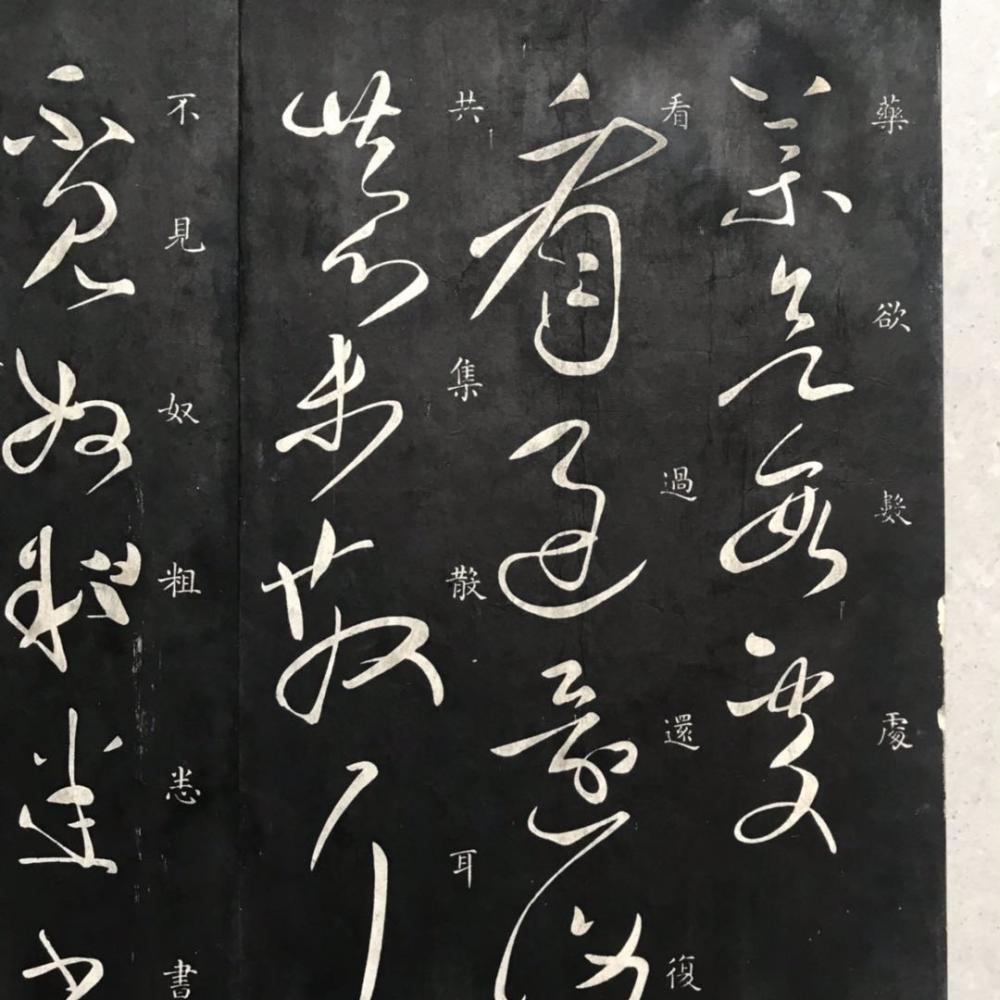 藥欲數處
看過還復
共集散耳
不見奴粗悉書